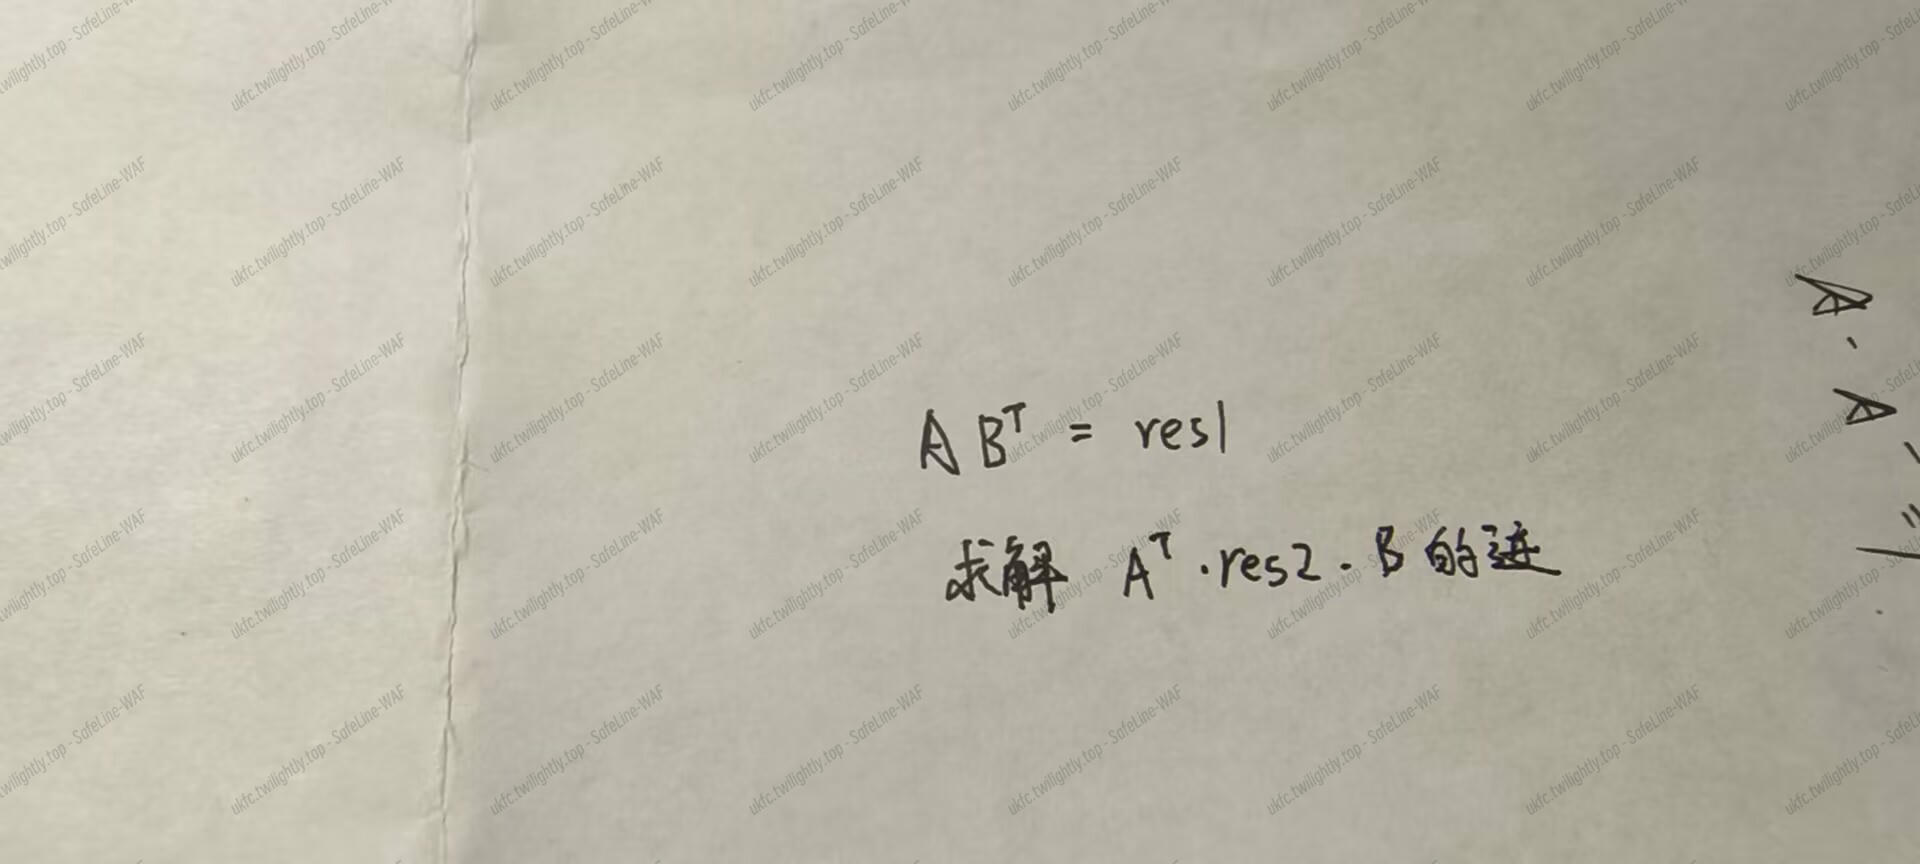 A Bᵀ = res1
求解 Aᵀ · res2 · B 的迹
ukfc.twilightly.top - SafeLine-WAF